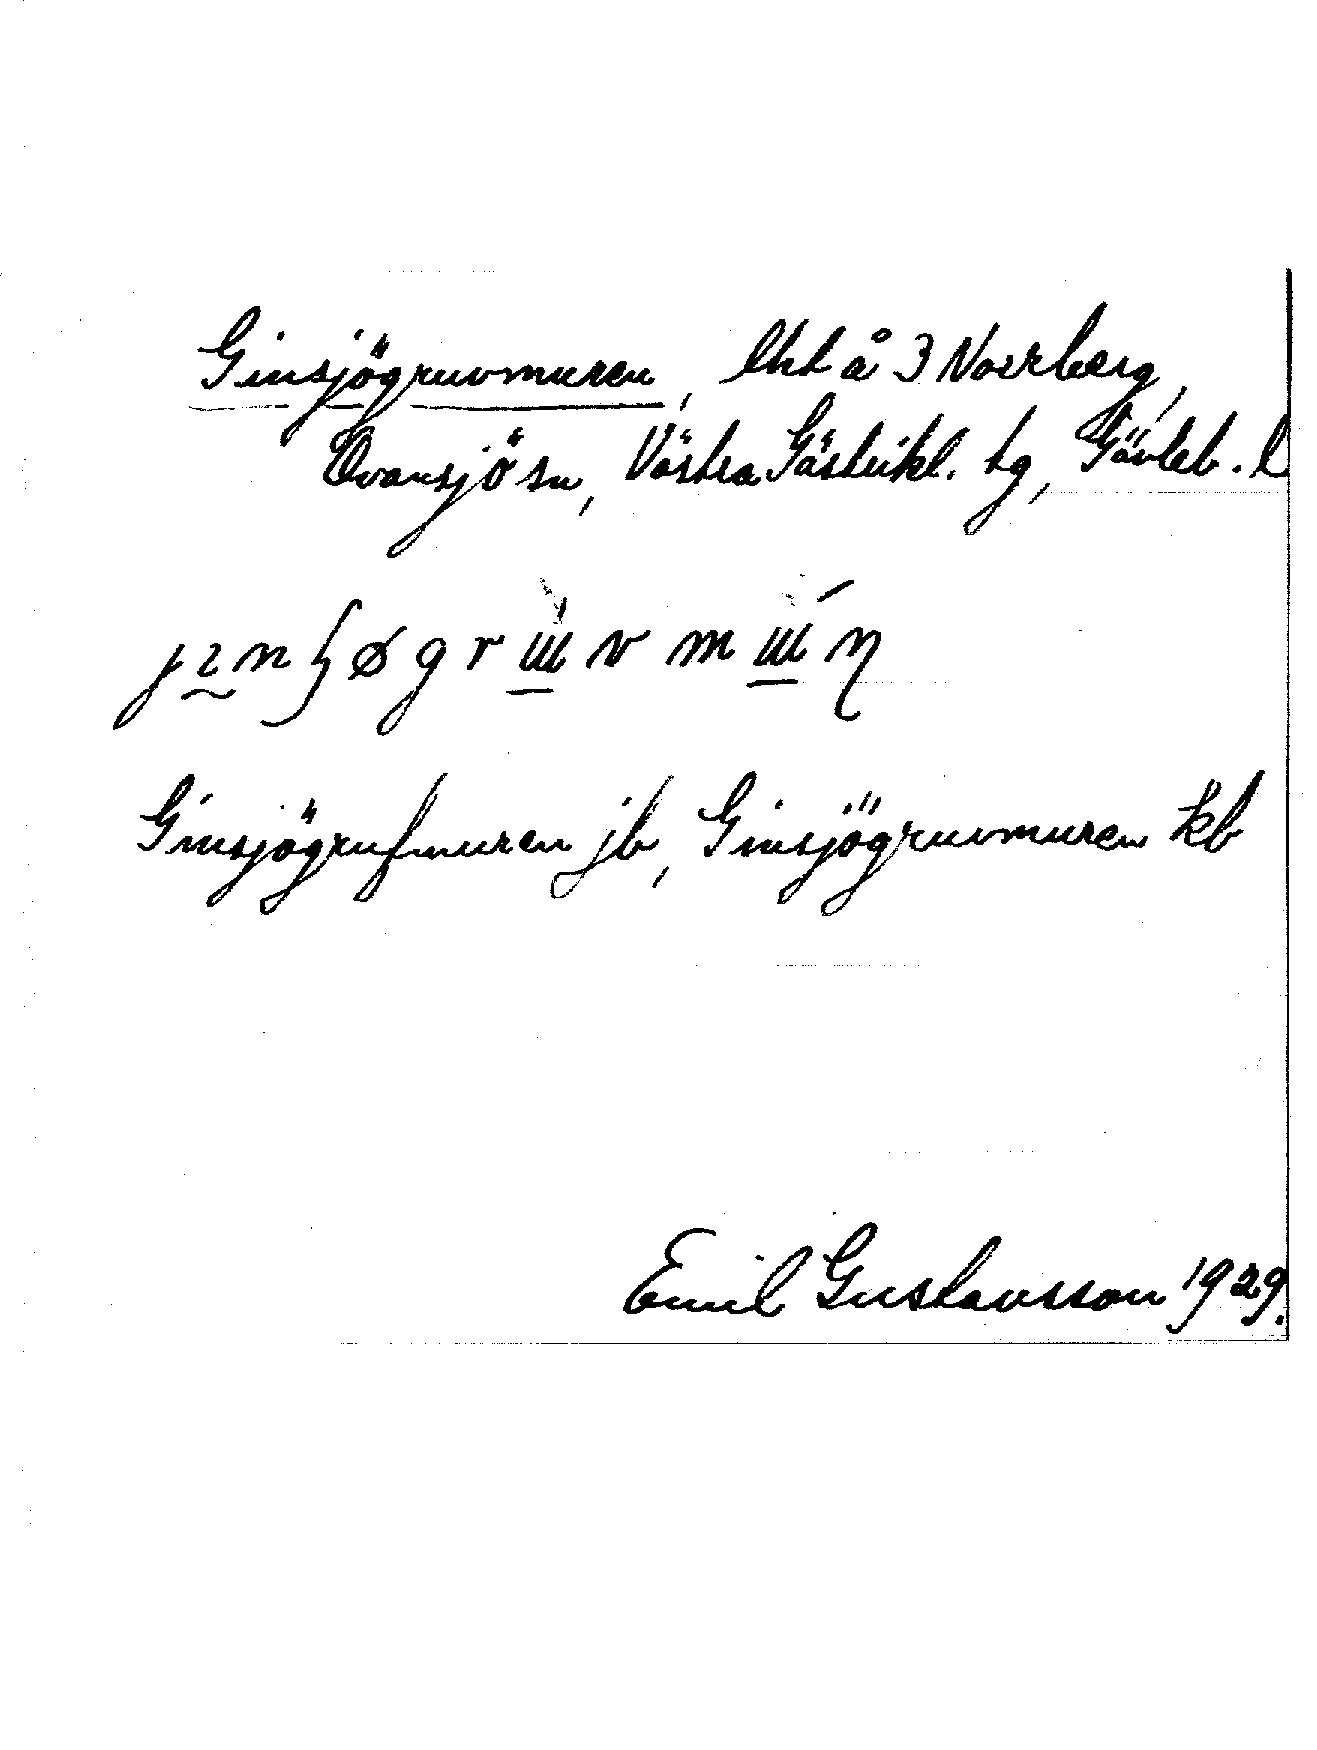 Ginsjögruvmuren, lht å 3 Norrberg,
Ovansjö sn, Västra Gästrikl. tg, Gävleb. l
Ginsjögrufmuren jb, Ginsjögruvmuren kb
Emil Gustavsson 1929.